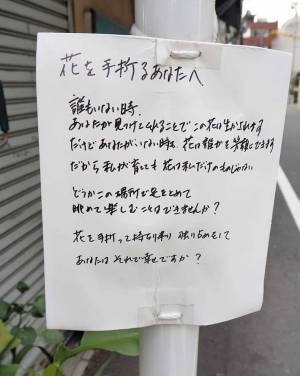 花を手折るあなたへ
誰もいない時、
あなたが見つけてくれることでこの花は生かされます
だけどあなたがいない時も、花は誰かを笑顔にできます
だから私が育てても花は私だけのものじゃない
どうかこの場所で足をとめて
眺めて楽しむことはできませんか?
花を手折って持ち帰り 独り占めをして
あなたは それで幸せですか?